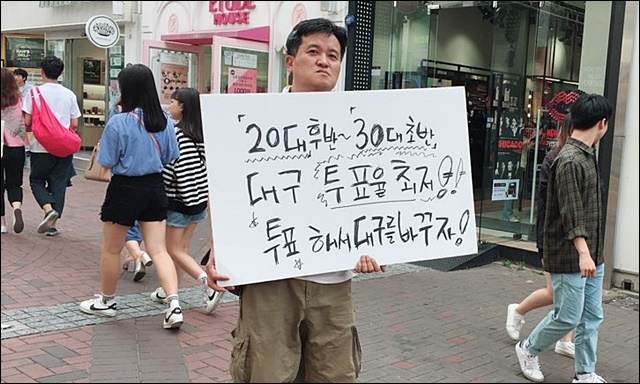 ETUDE
HOUSE
「20대후반~ 「30대초반,
대구 투표율 최저!
투표 해서 대구를바꾸자!
CHICAGO